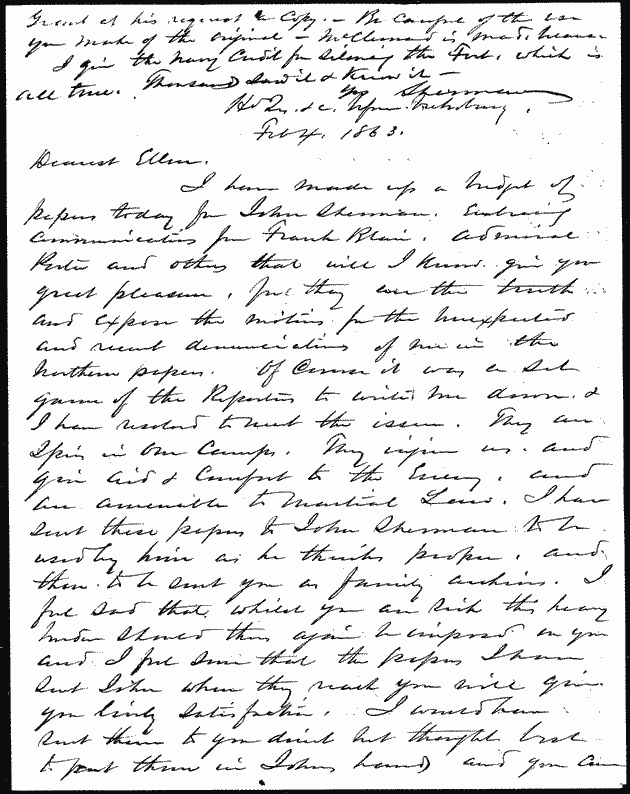 Grant at his request a Copy. - Be careful of the use
you make of the original - McClernand is mad, because
I give the Navy Credit for silencing the Fort, which is
all true. Thousands saw it & know it -
Yrs Sherman
Hd Qrs. &c. before Vicksburg,
Feb 4, 1863.
Dearest Ellen.
I have made up a budget of
papers today for John Sherman. Embracing
Communications from Frank Blair. Admiral
Porter and others that will I know give you
great pleasure, for they are the truth
and expose the motives for the unexpected
and recent denunciations of me in the
Northern papers. Of Course it was a set
game of the Reporters to write me down. &
I have resolved to meet the issue. They are
Spies in our Camps. They injure us. and
give aid & Comfort to the Enemy, and
are amenable to Martial Law. I have
sent these papers to John Sherman to be
used by him as he thinks proper, and
then to be sent you as family archives. I
feel sad that, whilst you are sick this heavy
burden should thus again be imposed on you
and I feel sure that the papers I have
sent John when they reach you will give
you lively satisfaction. I would have
sent them to you direct but thought best
to put them in Johns hands and you can